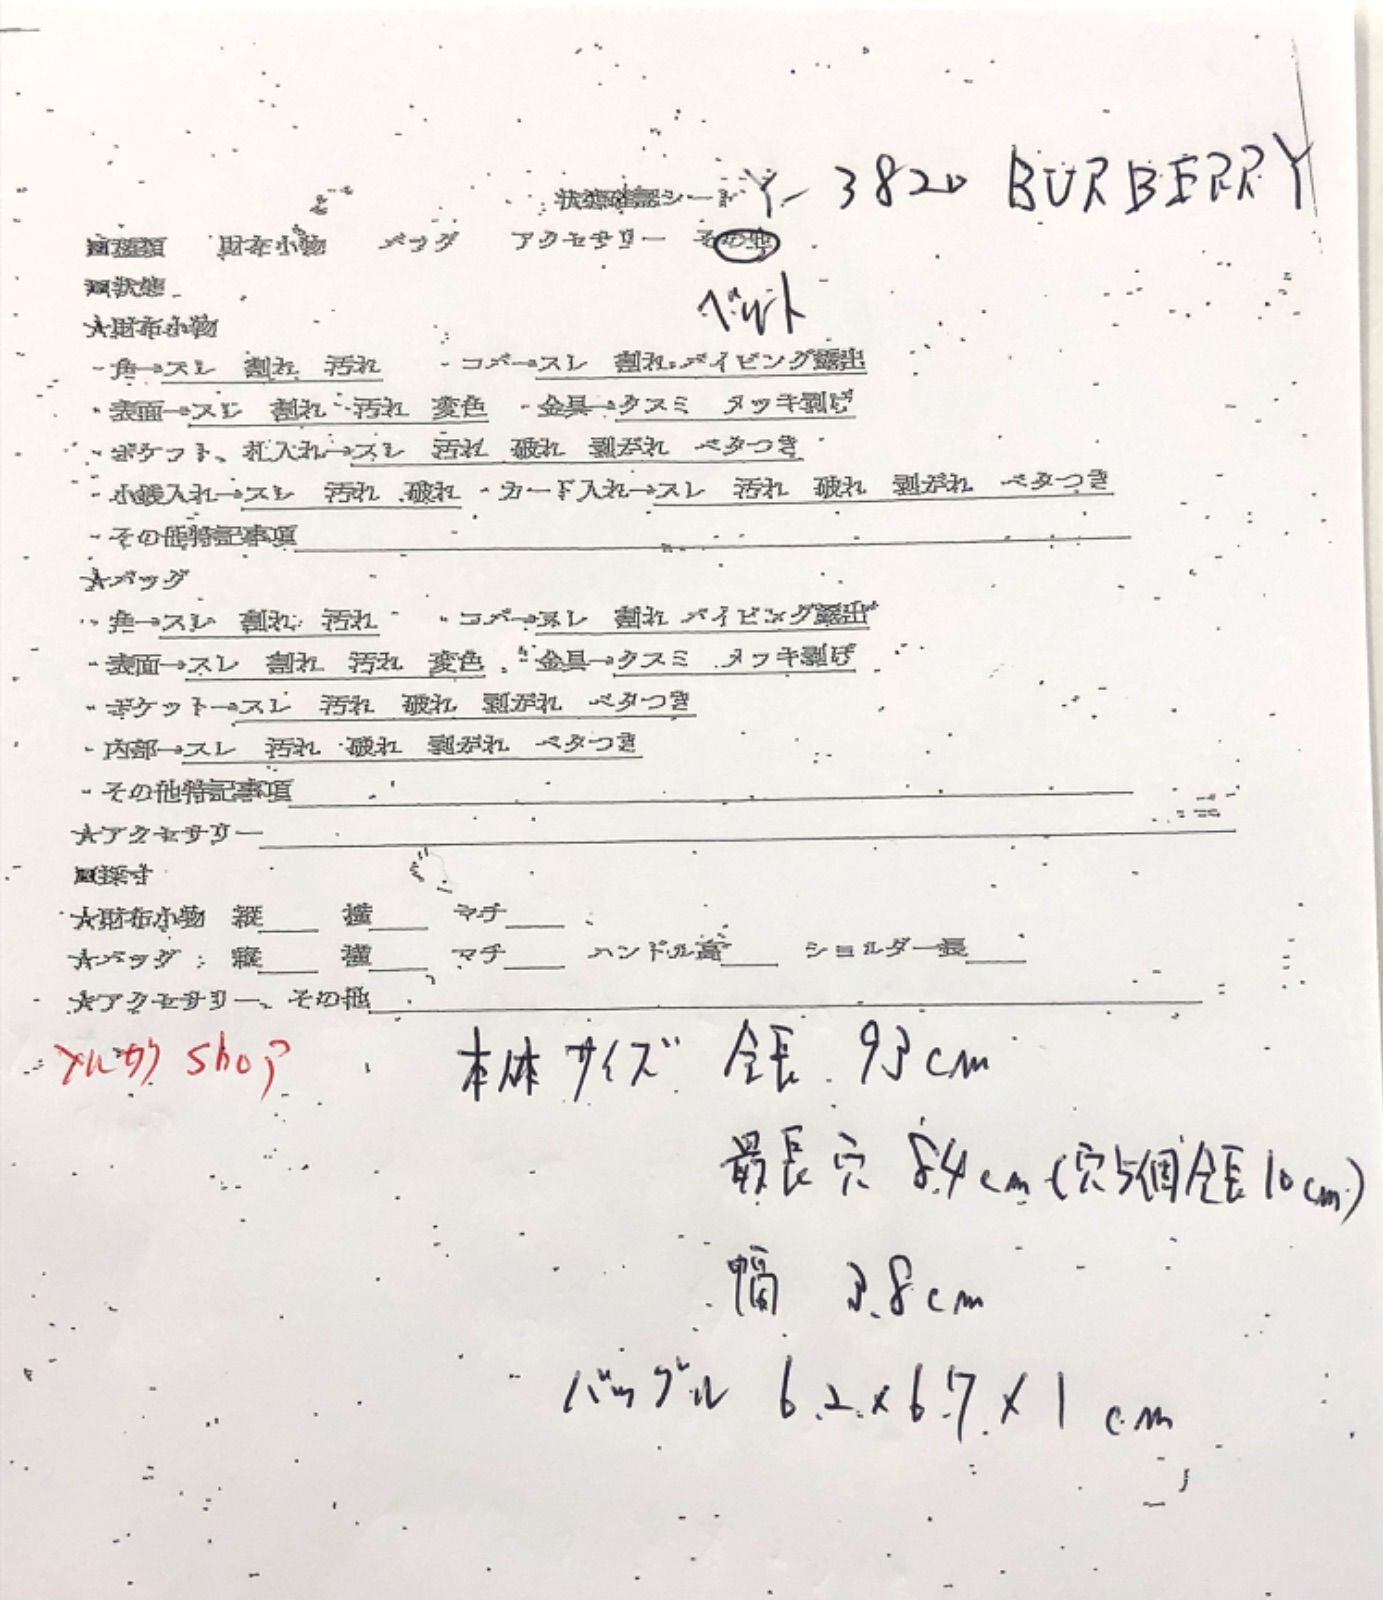 状態確認シート Y-3820 BURBERRY
■種類 財布小物 バッグ アクセサリー その他
■状態 ベルト
★財布小物
・角→スレ 割れ 汚れ ・コバ→スレ 割れ パイピング露出
・表面→スレ 割れ 汚れ 変色 ・金具→クスミ メッキ剥げ
・ポケット、札入れ→スレ 汚れ 破れ 剥がれ ベタつき
・小銭入れ→スレ 汚れ 破れ ・カード入れ→スレ 汚れ 破れ 剥がれ ベタつき
・その他特記事項
★バッグ
・角→スレ 割れ 汚れ ・コバ→スレ 割れ パイピング露出
・表面→スレ 割れ 汚れ 変色 ・金具→クスミ メッキ剥げ
・ポケット→スレ 汚れ 破れ 剥がれ ベタつき
・内部→スレ 汚れ 破れ 剥がれ ベタつき
・その他特記事項
★アクセサリー
■採寸
★財布小物 縦 横 マチ
★バッグ 縦 横 マチ ハンドル高 ショルダー長
★アクセサリー、その他
メルカリ shop 本体サイズ 全長 93cm
最長穴 84cm(穴5個全長10cm)
幅 3.8cm
バックル 6.2×6.7×1cm